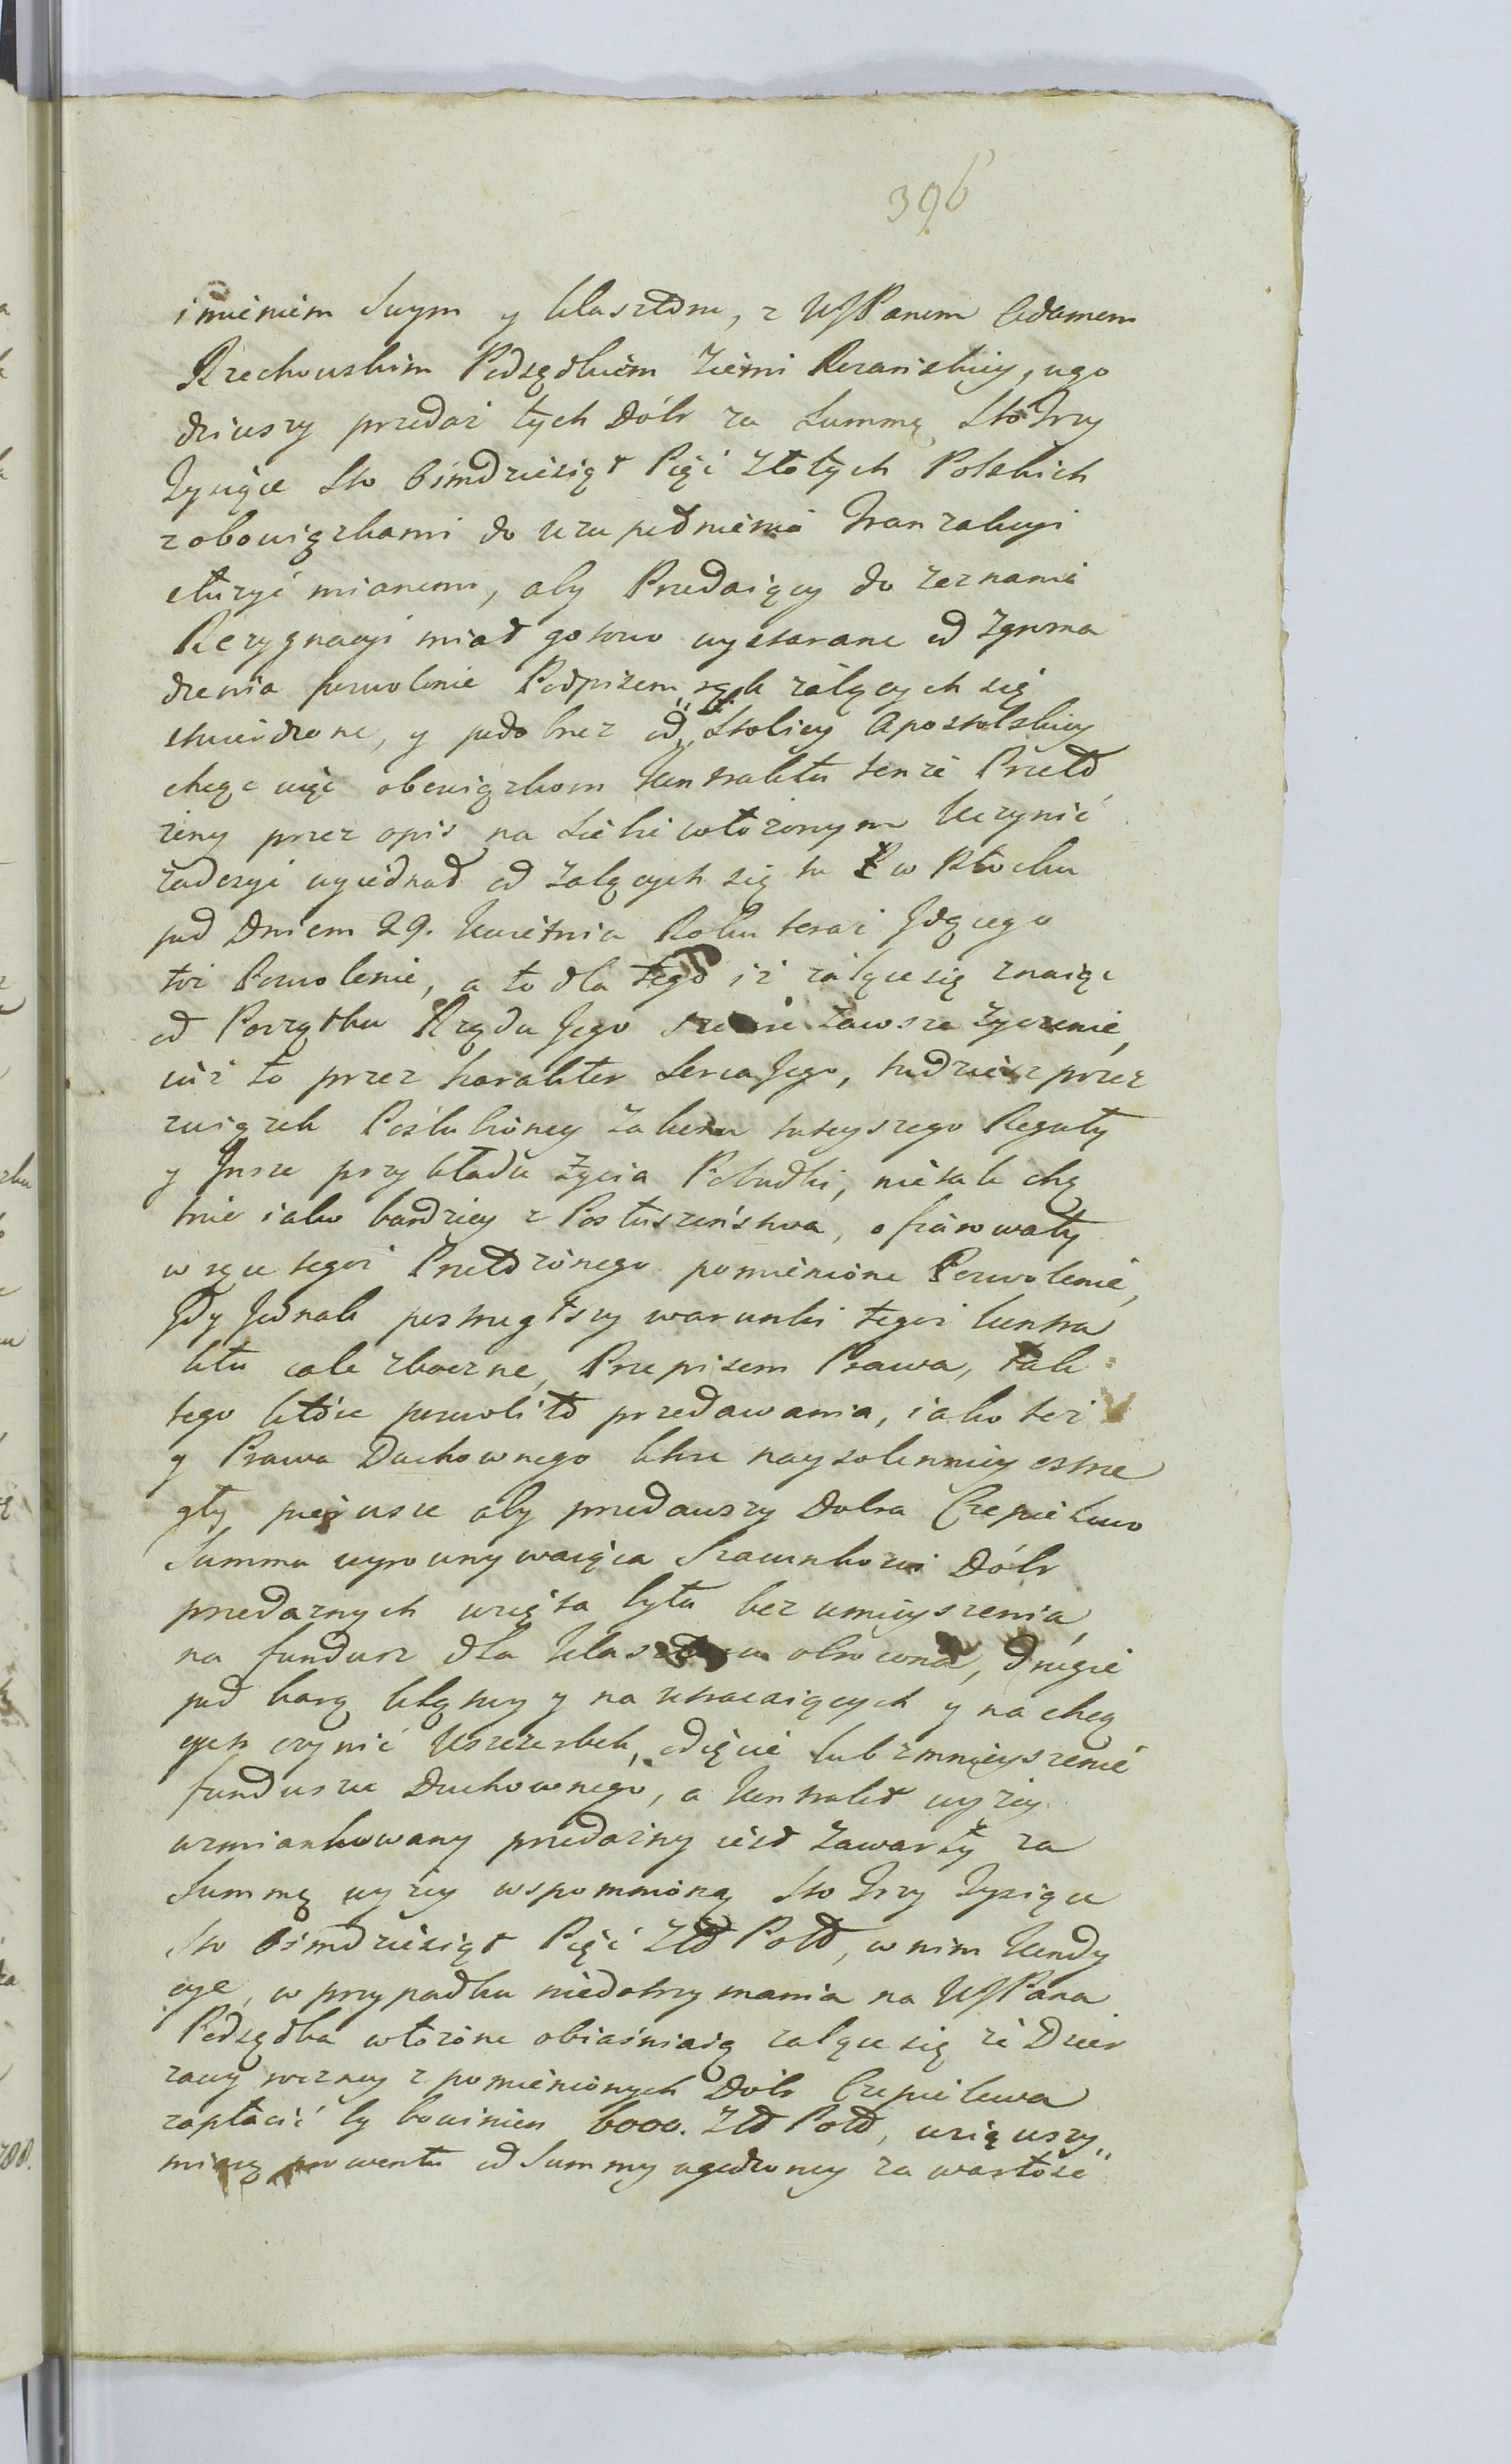 396
imieniem Swym y Klasztoru, z WJPanem Adamem
Rzechowskim Podsędkiem Ziemi Rozańskiey, ugo
dziwszy przedaż tych Dóbr za Summę Sto Trzy
Tysiące Sto Ośmdziesiąt Pięć Złotych Polskich
z obowiązkami do uzupełnienia Tranzakcyi
służyć mianemi, aby Przedaiący do zeznania
Rezygnacyi miał gotowo wystarane od Zgroma
dzenia pozwolenie Podpisem rąk żalących się
stwierdzone, y podobneż od Stolicy Apostolskiey
chcąc więc obowiązkom Kontraktu tenże Przeło
żony przez opis na siebie włożonym Uczynić
zadosyć wyiednał od Żalących się tu w Płocku
pod Dniem 29. Kwietnia Roku teraz Idącego
toż Pozwolenie, a to dla tego iż żalące się znaiąc
od Początku Rządu Jego zawsze Zyczenie,
iuż to przez harakter Serca Jego, tudzież przez
związek Poślubioney Zakonu tuteyszego Reguły
y Insze przykładu Życia Pobudki, nie tak chę
tnie iako bardziey z Posłuszeństwa, ofiarowały
w ręce tegoż Przełożonego pomienione Pozwolenie,
Gdy Jednak postrzegłszy warunki tegoż Kontra
ktu cale zboczne, Przepisem Prawa, tak
tego które pozwoliło przedawania, iako też
y Prawa Duchownego które naysolenniey ostrze
gły pierwsze aby przedawszy Dobra Czepielewo
Summa wyrownywaiąca Szacunkowi Dóbr
przedaznych wzięta była bez umnieyszenia,
na fundusz dla Klasztoru obrocona, drugie
pod karą klątwy y na utracaiących y na chcą
cych czynić Uszczerbek, odięcie lub zmnieyszenie
funduszu Duchownego, a Kontrakt wyżey
wzmiankowany przedażny iest Zawarty za
Summę wyżey wspomnioną Sto Trzy Tysiące
Sto Ośmdziesiąt Pięć Złł Poll, w nim Kondy
cye, w przypadku niedotrzymania na WJPana
Podsędka włożone obiaśniaią żalące się że Dzier
żawy roczney z pomienionych Dóbr Czepielewa
zapłacić by powinien 6000. Złł Poll, wziąwszy
miarę prowentu od Summy ugodzoney za wartość